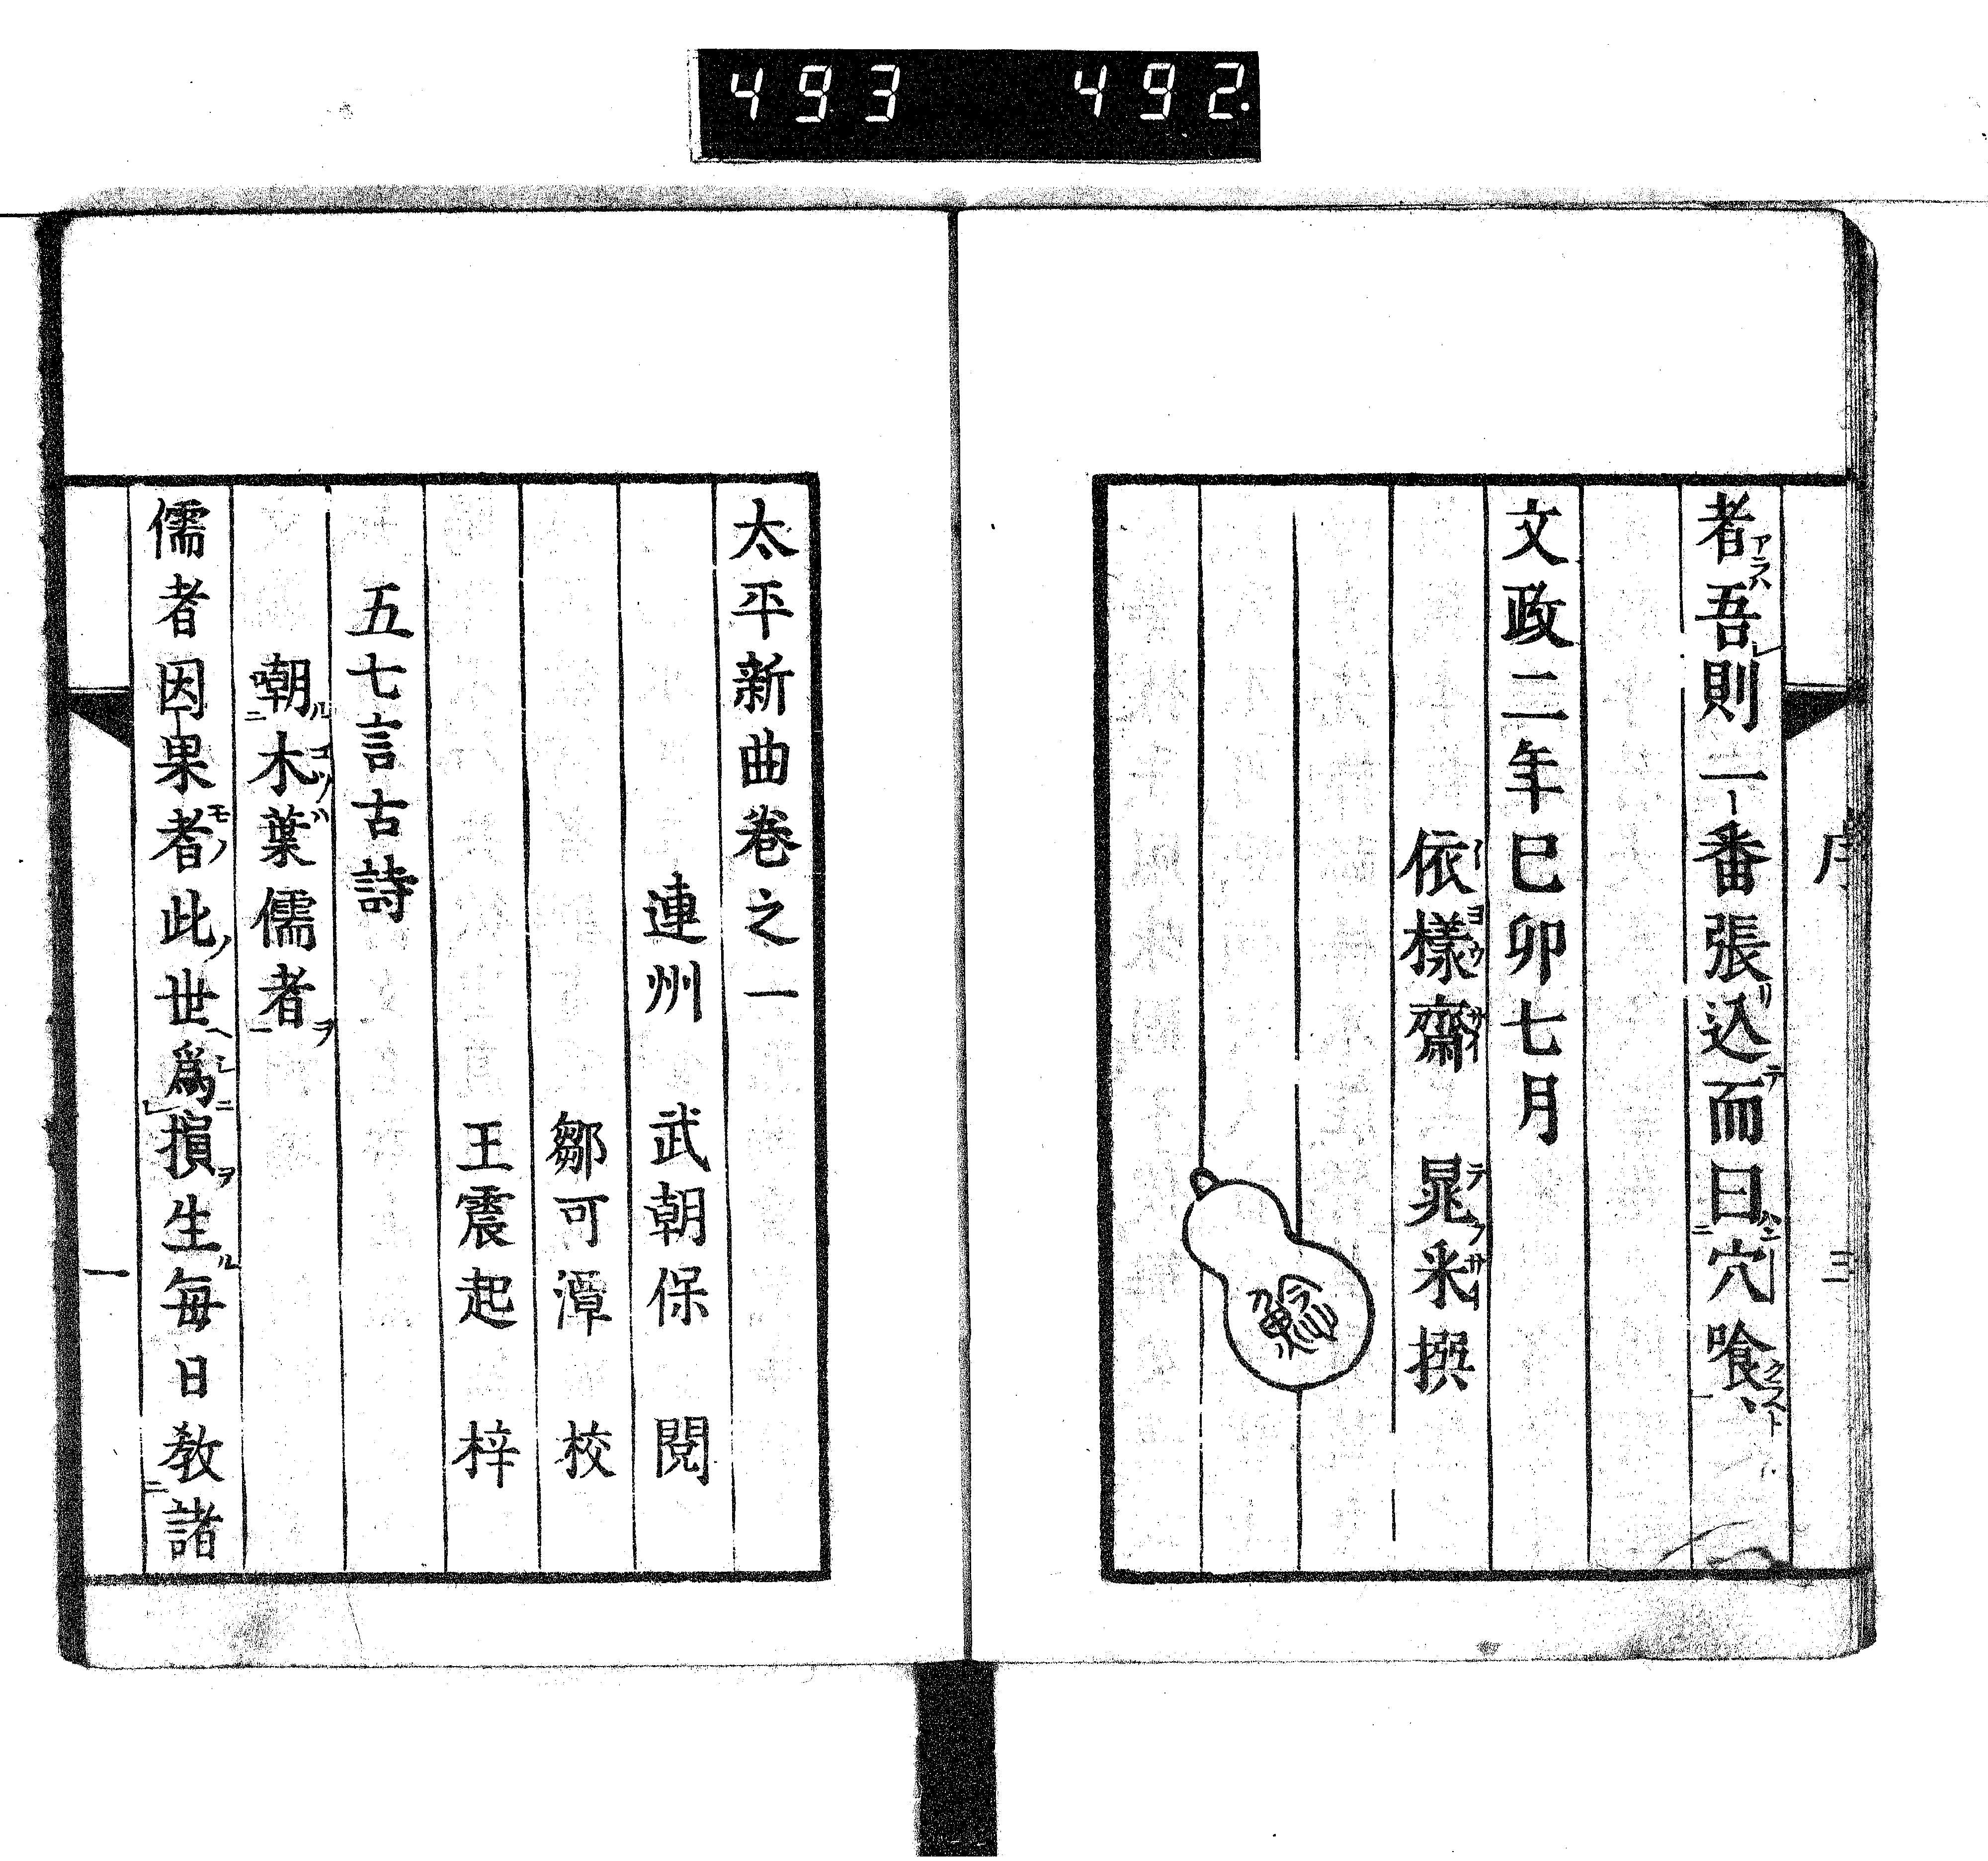 493 492
者吾則一番張込而曰穴喰
文政二年巳卯七月
依樣齋 晁釆撰
序 三
太平新曲卷之一
連州 武朝保 閲
鄒可潭 校
王震起 梓
五七言古詩
嘲木葉儒者
儒者因果者此世爲損生每日教諸
一